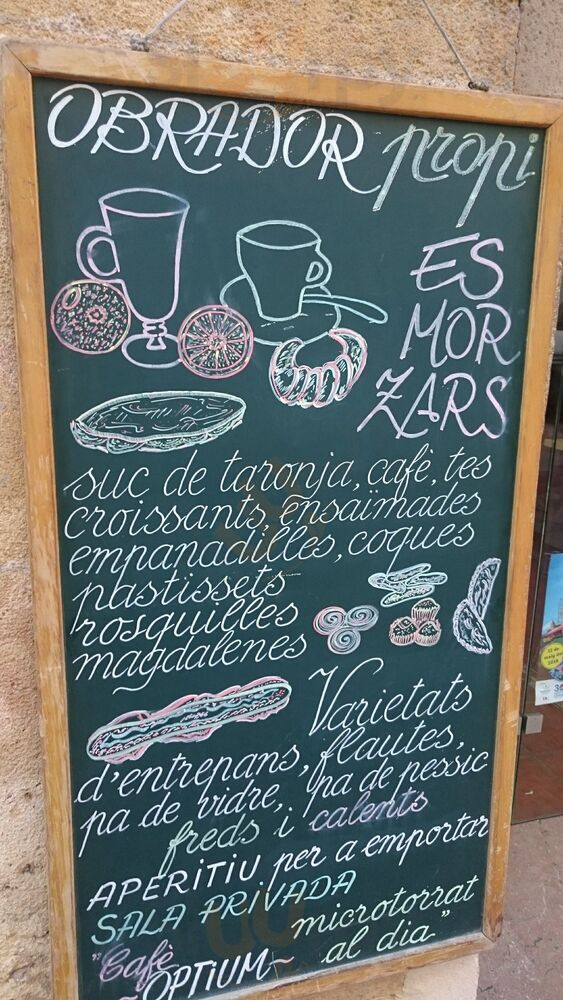 OBRADOR propi
ES
MOR
ZARS
suc de taronja, cafè, tes
croissants, ensaïmades
empanadilles, coques
pastissets
rosquilles
magdalenes
Varietats
d'entrepans, flautes,
pa de vidre, pa de pessic
freds i calents
APERITIU per a emportar
SALA PRIVADA
"Cafè microtorrat
~OPTIUM~ al dia"
12 de